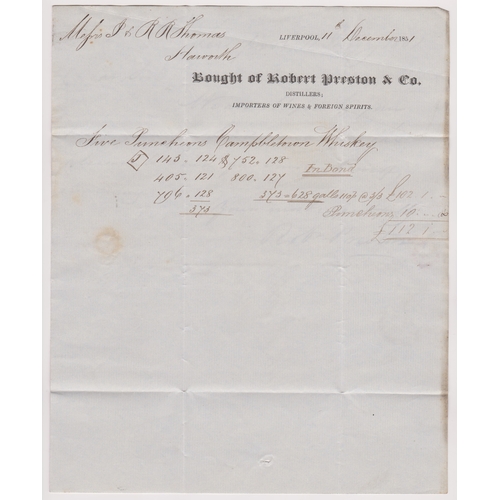 Messrs J & R R Thomas
Haworth
LIVERPOOL, 11th December 1851
Bought of Robert Preston & Co.
DISTILLERS;
IMPORTERS OF WINES & FOREIGN SPIRITS.
Five Puncheons Campbletown Whiskey
143. 124 752. 128
405. 121 800. 127 In Bond
796. 128 373. 628 galls @ 3/3 £102. 1. -
373 Puncheons 10. -. -
£112 1 -